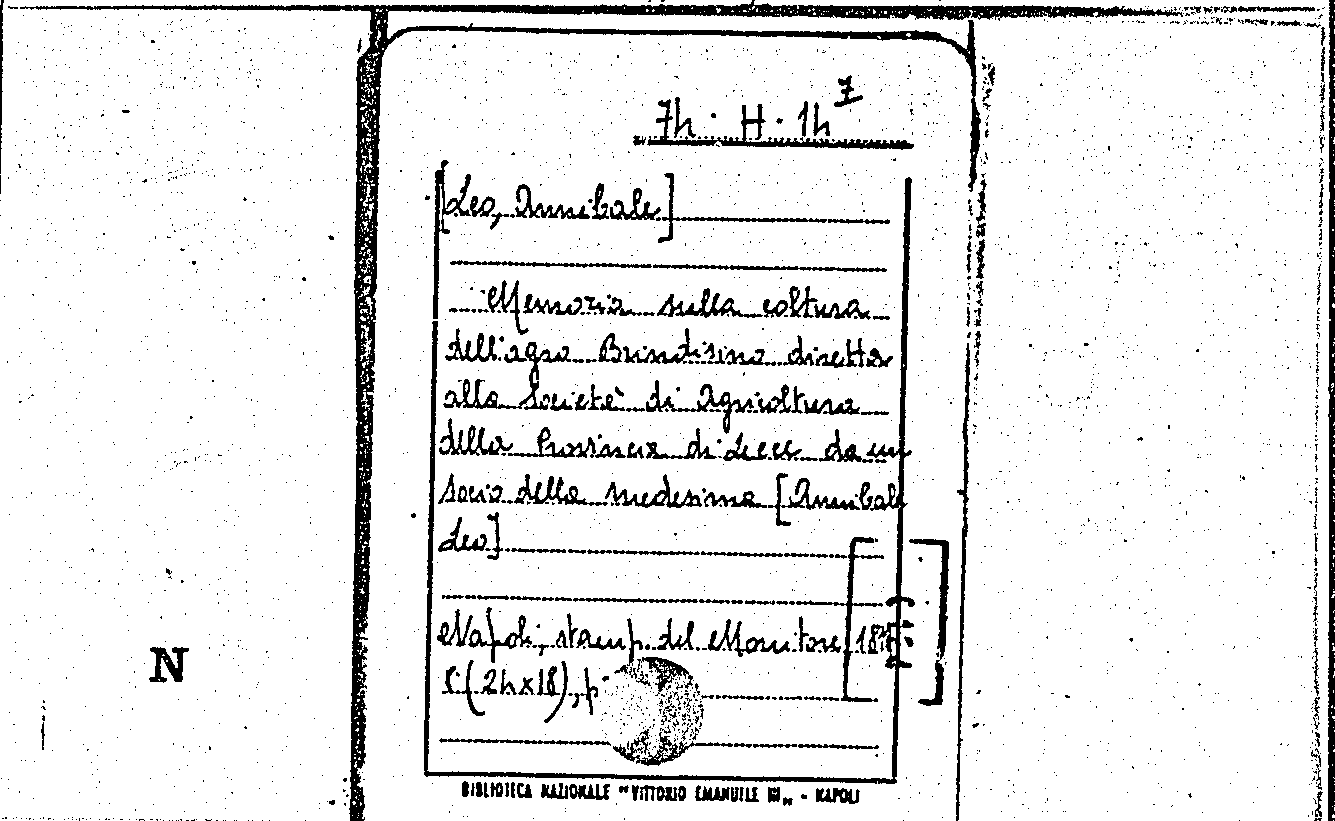 7h · H · 1h 7
[Leo, Annibale]
Memoria sulla coltura
dell'agro Brindisino diretta
alla Società di Agricoltura
della Provincia di Lecce da un
socio della medesima [Annibale
Leo]
Napoli, stamp. del Monitore,
(2h×18), p.
N
BIBLIOTECA NAZIONALE "VITTORIO EMANUELE III" - NAPOLI